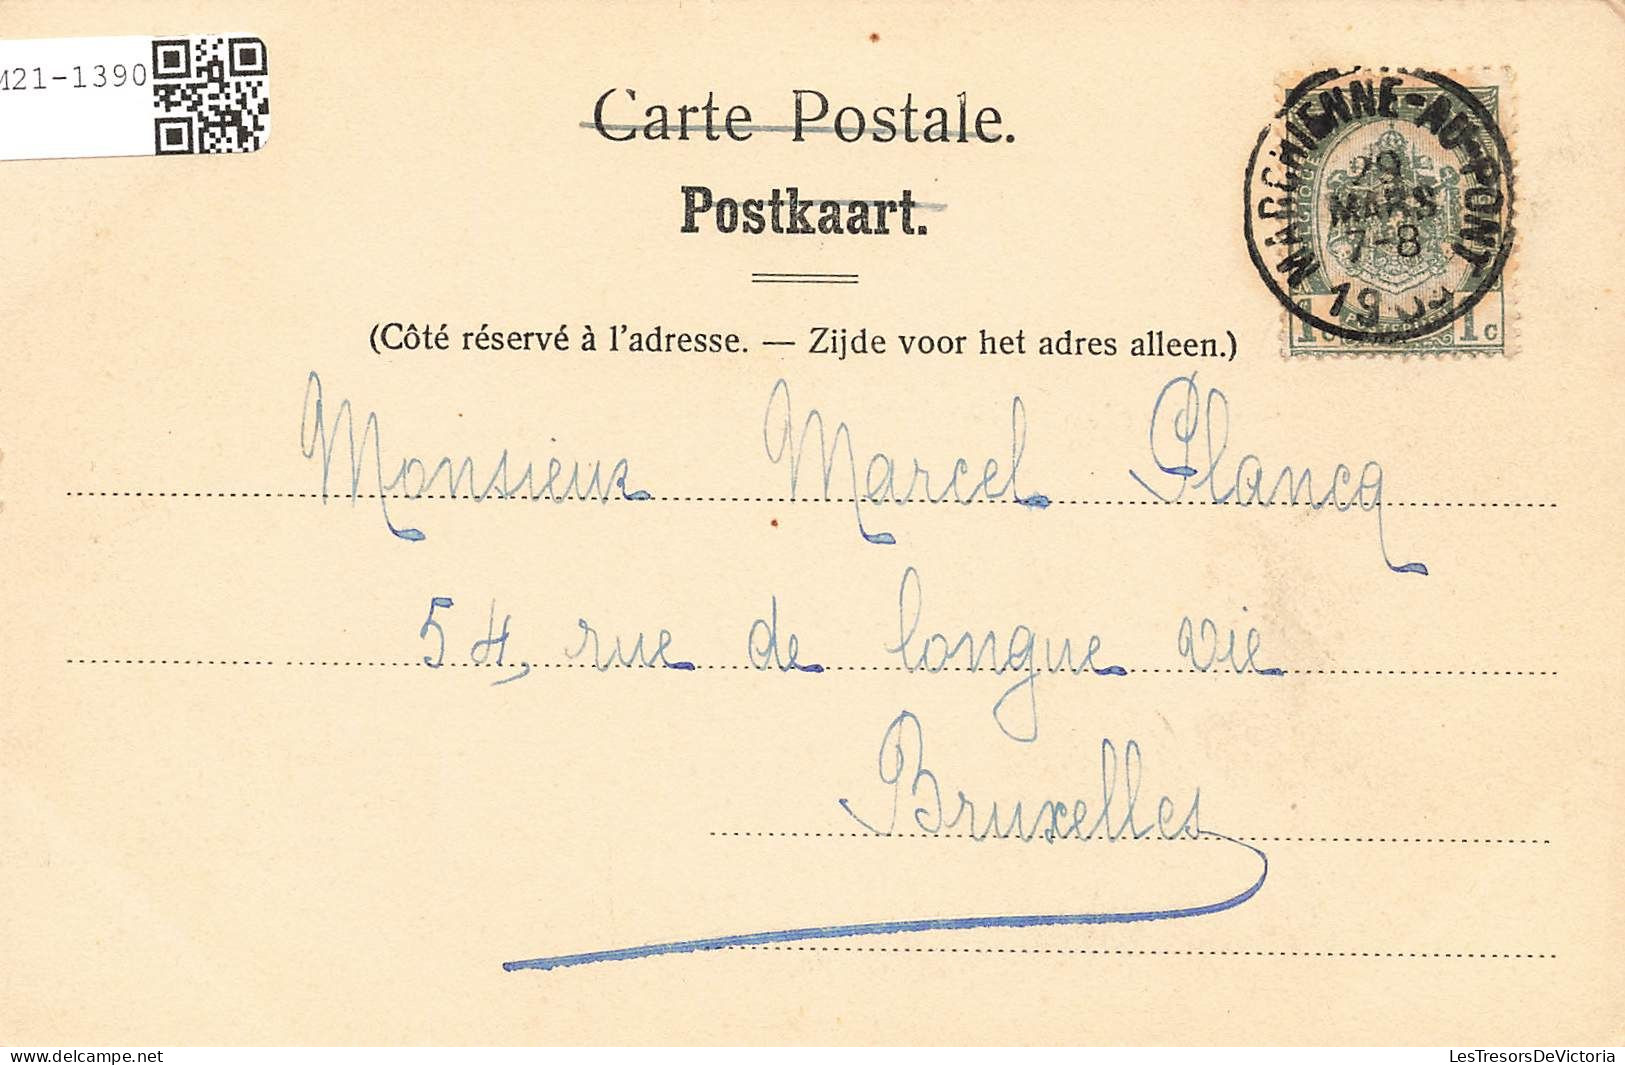 M21-1390
Carte Postale.
Postkaart.
(Côté réservé à l'adresse. — Zijde voor het adres alleen.)
MARCHIENNE-AU-PONT
29
MARS
7-8
1 c
Monsieur Marcel Plancq
54, rue de longue vie
Bruxelles
LesTresorsDeVictoria
delcampe.net